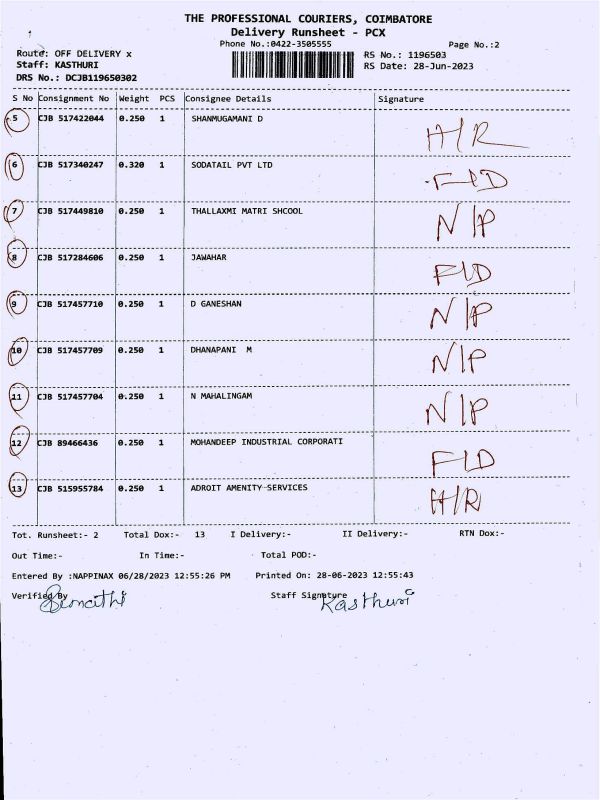 THE PROFESSIONAL COURIERS, COIMBATORE
Delivery Runsheet - PCX
Phone No.:0422-3505555 Page No.:2
Route: OFF DELIVERY x RS No.: 1196503
Staff: KASTHURI RS Date: 28-Jun-2023
DRS No.: DCJB119650302
S No Consignment No Weight PCS Consignee Details Signature
5 CJB 517422044 0.250 1 SHANMUGAMANI D H/R
6 CJB 517340247 0.320 1 SODATAIL PVT LTD F|D
7 CJB 517449810 0.250 1 THALLAXMI MATRI SHCOOL N|P
8 CJB 517284606 0.250 1 JAWAHAR F|D
9 CJB 517457710 0.250 1 D GANESHAN N|P
10 CJB 517457709 0.250 1 DHANAPANI M N|P
11 CJB 517457704 0.250 1 N MAHALINGAM N|P
12 CJB 89466436 0.250 1 MOHANDEEP INDUSTRIAL CORPORATI F|D
13 CJB 515955784 0.250 1 ADROIT AMENITY SERVICES H/R
Tot. Runsheet:- 2 Total Dox:- 13 I Delivery:- II Delivery:- RTN Dox:-
Out Time:- In Time:- Total POD:-
Entered By :NAPPINAX 06/28/2023 12:55:26 PM Printed On: 28-06-2023 12:55:43
Verified By Staff Signature Kasthuri